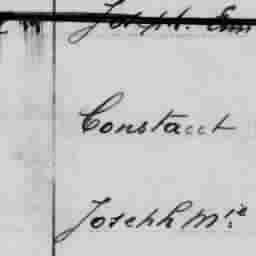 Joseph. Em
Constant
Joseph M.ie